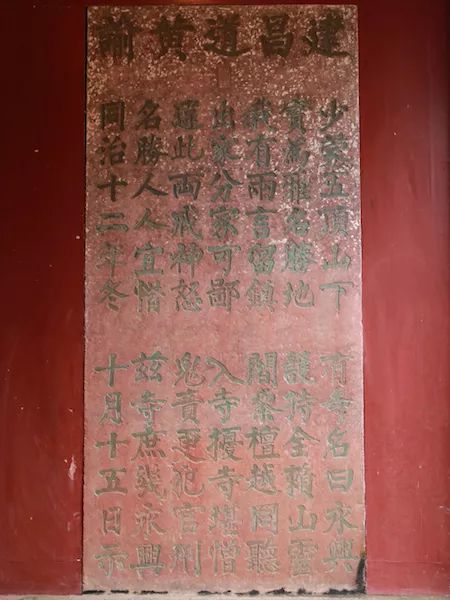 建昌道黃諭
少五頂山下 有寺名曰永興
實為雅名勝地 護持全賴山靈
我有兩言留鎮 闍黎檀越同聽
出家分家可鄙 入寺擾寺堪憎
違此両戒神怒 鬼責更犯官刑
名勝人人宜惜 茲寺庶幾永興
同治十二年冬 十月十五日示